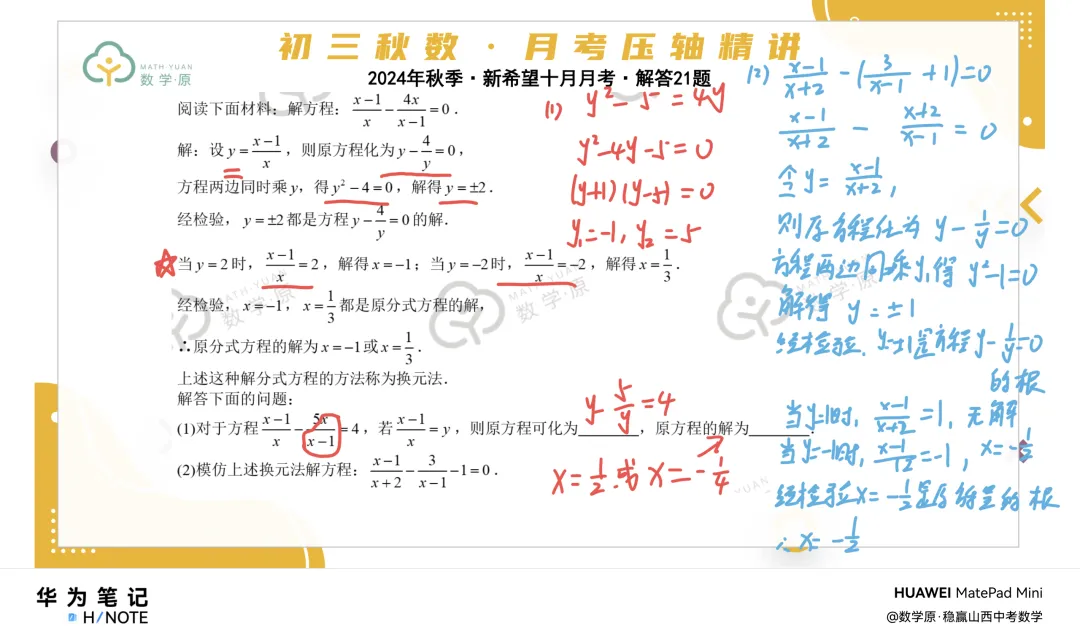 初三秋数·月考压轴精讲
MATH·YUAN
数学·原
2024年秋季·新希望十月月考·解答21题
阅读下面材料：解方程：(x−1)/x − 4x/(x−1) = 0．
解：设 y = (x−1)/x，则原方程化为 y − 4/y = 0，
方程两边同时乘 y，得 y² − 4 = 0，解得 y = ±2．
经检验，y = ±2 都是方程 y − 4/y = 0 的解．
当 y = 2 时，(x−1)/x = 2，解得 x = −1；当 y = −2 时，(x−1)/x = −2，解得 x = 1/3．
经检验，x = −1，x = 1/3 都是原分式方程的解，
∴原分式方程的解为 x = −1 或 x = 1/3．
上述这种解分式方程的方法称为换元法．
解答下面的问题：
(1)对于方程 (x−1)/x − 5x/(x−1) = 4，若 (x−1)/x = y，则原方程可化为______，原方程的解为______．
(2)模仿上述换元法解方程：(x−1)/(x+2) − 3/(x−1) − 1 = 0．
y − 5/y = 4
x = 1/2 或 x = −1/4
(1) y² − 5 = 4y
y² − 4y − 5 = 0
(y+1)(y−5) = 0
y₁ = −1, y₂ = 5
(2) (x−1)/(x+2) − (3/(x−1) + 1) = 0
(x−1)/(x+2) − (x+2)/(x−1) = 0
令 y = (x−1)/(x+2)，
则原方程化为 y − 1/y = 0
方程两边同乘 y，得 y² − 1 = 0
解得 y = ±1
经检验，y = ±1 是方程 y − 1/y = 0
的根
当 y=1时，(x−1)/(x+2) = 1，无解
当 y=−1时，(x−1)/(x+2) = −1，x = −1/2
经检验 x = −1/2 是原方程的根
∴ x = −1/2
MATH·YUAN
数学·原
MATH·YUAN
数学·原
华为笔记
H/NOTE
HUAWEI MatePad Mini
@数学原·稳赢山西中考数学